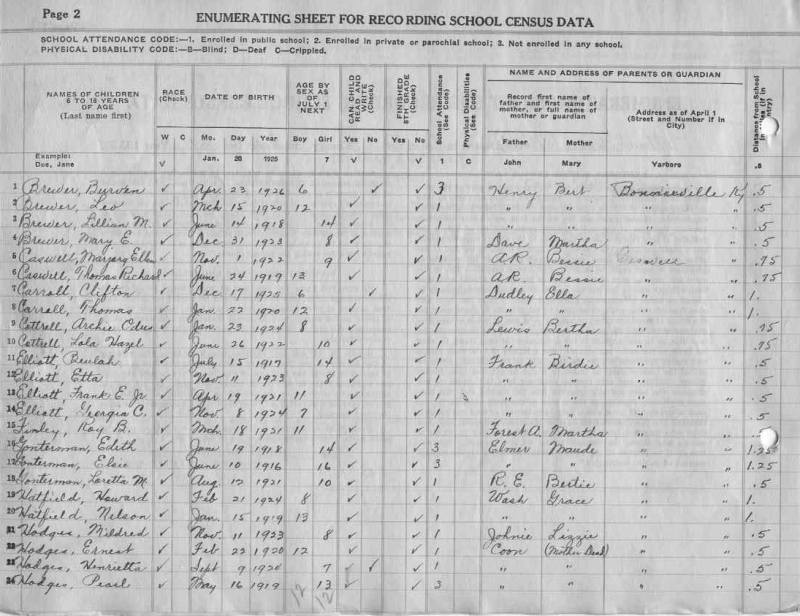 Page 2
ENUMERATING SHEET FOR RECORDING SCHOOL CENSUS DATA
SCHOOL ATTENDANCE CODE:—1. Enrolled in public school; 2. Enrolled in private or parochial school; 3. Not enrolled in any school.
PHYSICAL DISABILITY CODE:—B—Blind; D—Deaf C—Crippled.
NAMES OF CHILDREN 6 TO 18 YEARS OF AGE (Last name first)
RACE (Check)
W C
DATE OF BIRTH
Mo. Day Year
AGE BY SEX AS OF JULY 1 NEXT
Boy Girl
CAN CHILD READ AND WRITE (Check)
Yes No
FINISHED 8TH GRADE (Check)
Yes No
School Attendance (See Code)
Physical Disabilities (See Code)
NAME AND ADDRESS OF PARENTS OR GUARDIAN
Record first name of father and first name of mother, or full name of mother or guardian
Father Mother
Address as of April 1 (Street and Number if in City)
Distance from School
Example: Doe, Jane V Jan. 28 1925 7 V V 1 C John Mary Yarboro .8
1 Brewer, Burven ✓ Apr. 23 1926 6 ✓ ✓ 3 Henry Bert Bonnieville Ky .5
2 Brewer, Leo ✓ Mch 15 1920 12 ✓ ✓ 1 " " " " .5
3 Brewer, Lillian M. ✓ June 14 1918 14 ✓ ✓ 1 " " " " .5
4 Brewer, Mary E. ✓ Dec 31 1923 8 ✓ ✓ 1 Dave Martha " " .5
5 Caswell, Marjory Ellen ✓ Nov. 1 1922 9 ✓ ✓ 1 A.R. Bessie " .75
6 Caswell, Thomas Richard ✓ June 24 1919 13 ✓ ✓ 1 A.R. Bessie " " .75
7 Carroll, Clifton ✓ Dec 17 1925 6 ✓ ✓ 1 Dudley Ella " " 1.
8 Carroll, Thomas ✓ Jan. 22 1920 12 ✓ ✓ 1 " " " " 1.
9 Cottrell, Archie Odus ✓ Jan. 23 1924 8 ✓ ✓ 1 Lewis Bertha " " .75
10 Cottrell, Lola Hazel ✓ June 26 1922 10 ✓ ✓ 1 " " " " .75
11 Elliott, Beulah ✓ July 15 1917 14 ✓ ✓ 1 Frank Birdie " " .5
12 Elliott, Etta ✓ Nov. 11 1923 8 ✓ ✓ 1 " " " " .5
13 Elliott, Frank E. Jr ✓ Apr 19 1921 11 ✓ ✓ 1 " " " " .5
14 Elliott, Georgia C. ✓ Nov. 8 1924 7 ✓ ✓ 1 " " " " .5
15 Finley, Roy B. ✓ Mch. 18 1921 11 ✓ ✓ 1 Forest A. Martha " " .5
16 Gonterman, Edith ✓ June 19 1918 14 ✓ ✓ 3 Elmer Maude " " 1.25
17 Gonterman, Elsie ✓ June 10 1916 16 ✓ ✓ 3 " " " " 1.25
18 Gonterman, Loretta M. ✓ Aug. 12 1921 10 ✓ ✓ 1 R. E. Bertie " " .5
19 Hatfield, Howard ✓ Feb 21 1924 8 ✓ ✓ 1 Wash Grace " " 1.
20 Hatfield, Nelson ✓ Jan. 15 1919 13 ✓ ✓ 1 " " " " 1.
21 Hodges, Mildred ✓ Nov. 11 1923 8 ✓ ✓ 1 Johnie Lizzie " " .5
22 Hodges, Ernest ✓ Feb 22 1920 12 ✓ ✓ 1 Coon (Mother Dead) " " .5
23 Hodges, Henrietta ✓ Sept 9 1924 7 ✓ ✓ ✓ 1 " " " " .5
24 Hodges, Pearl ✓ May 16 1919 13 ✓ ✓ 3 " " " " .5
12 12